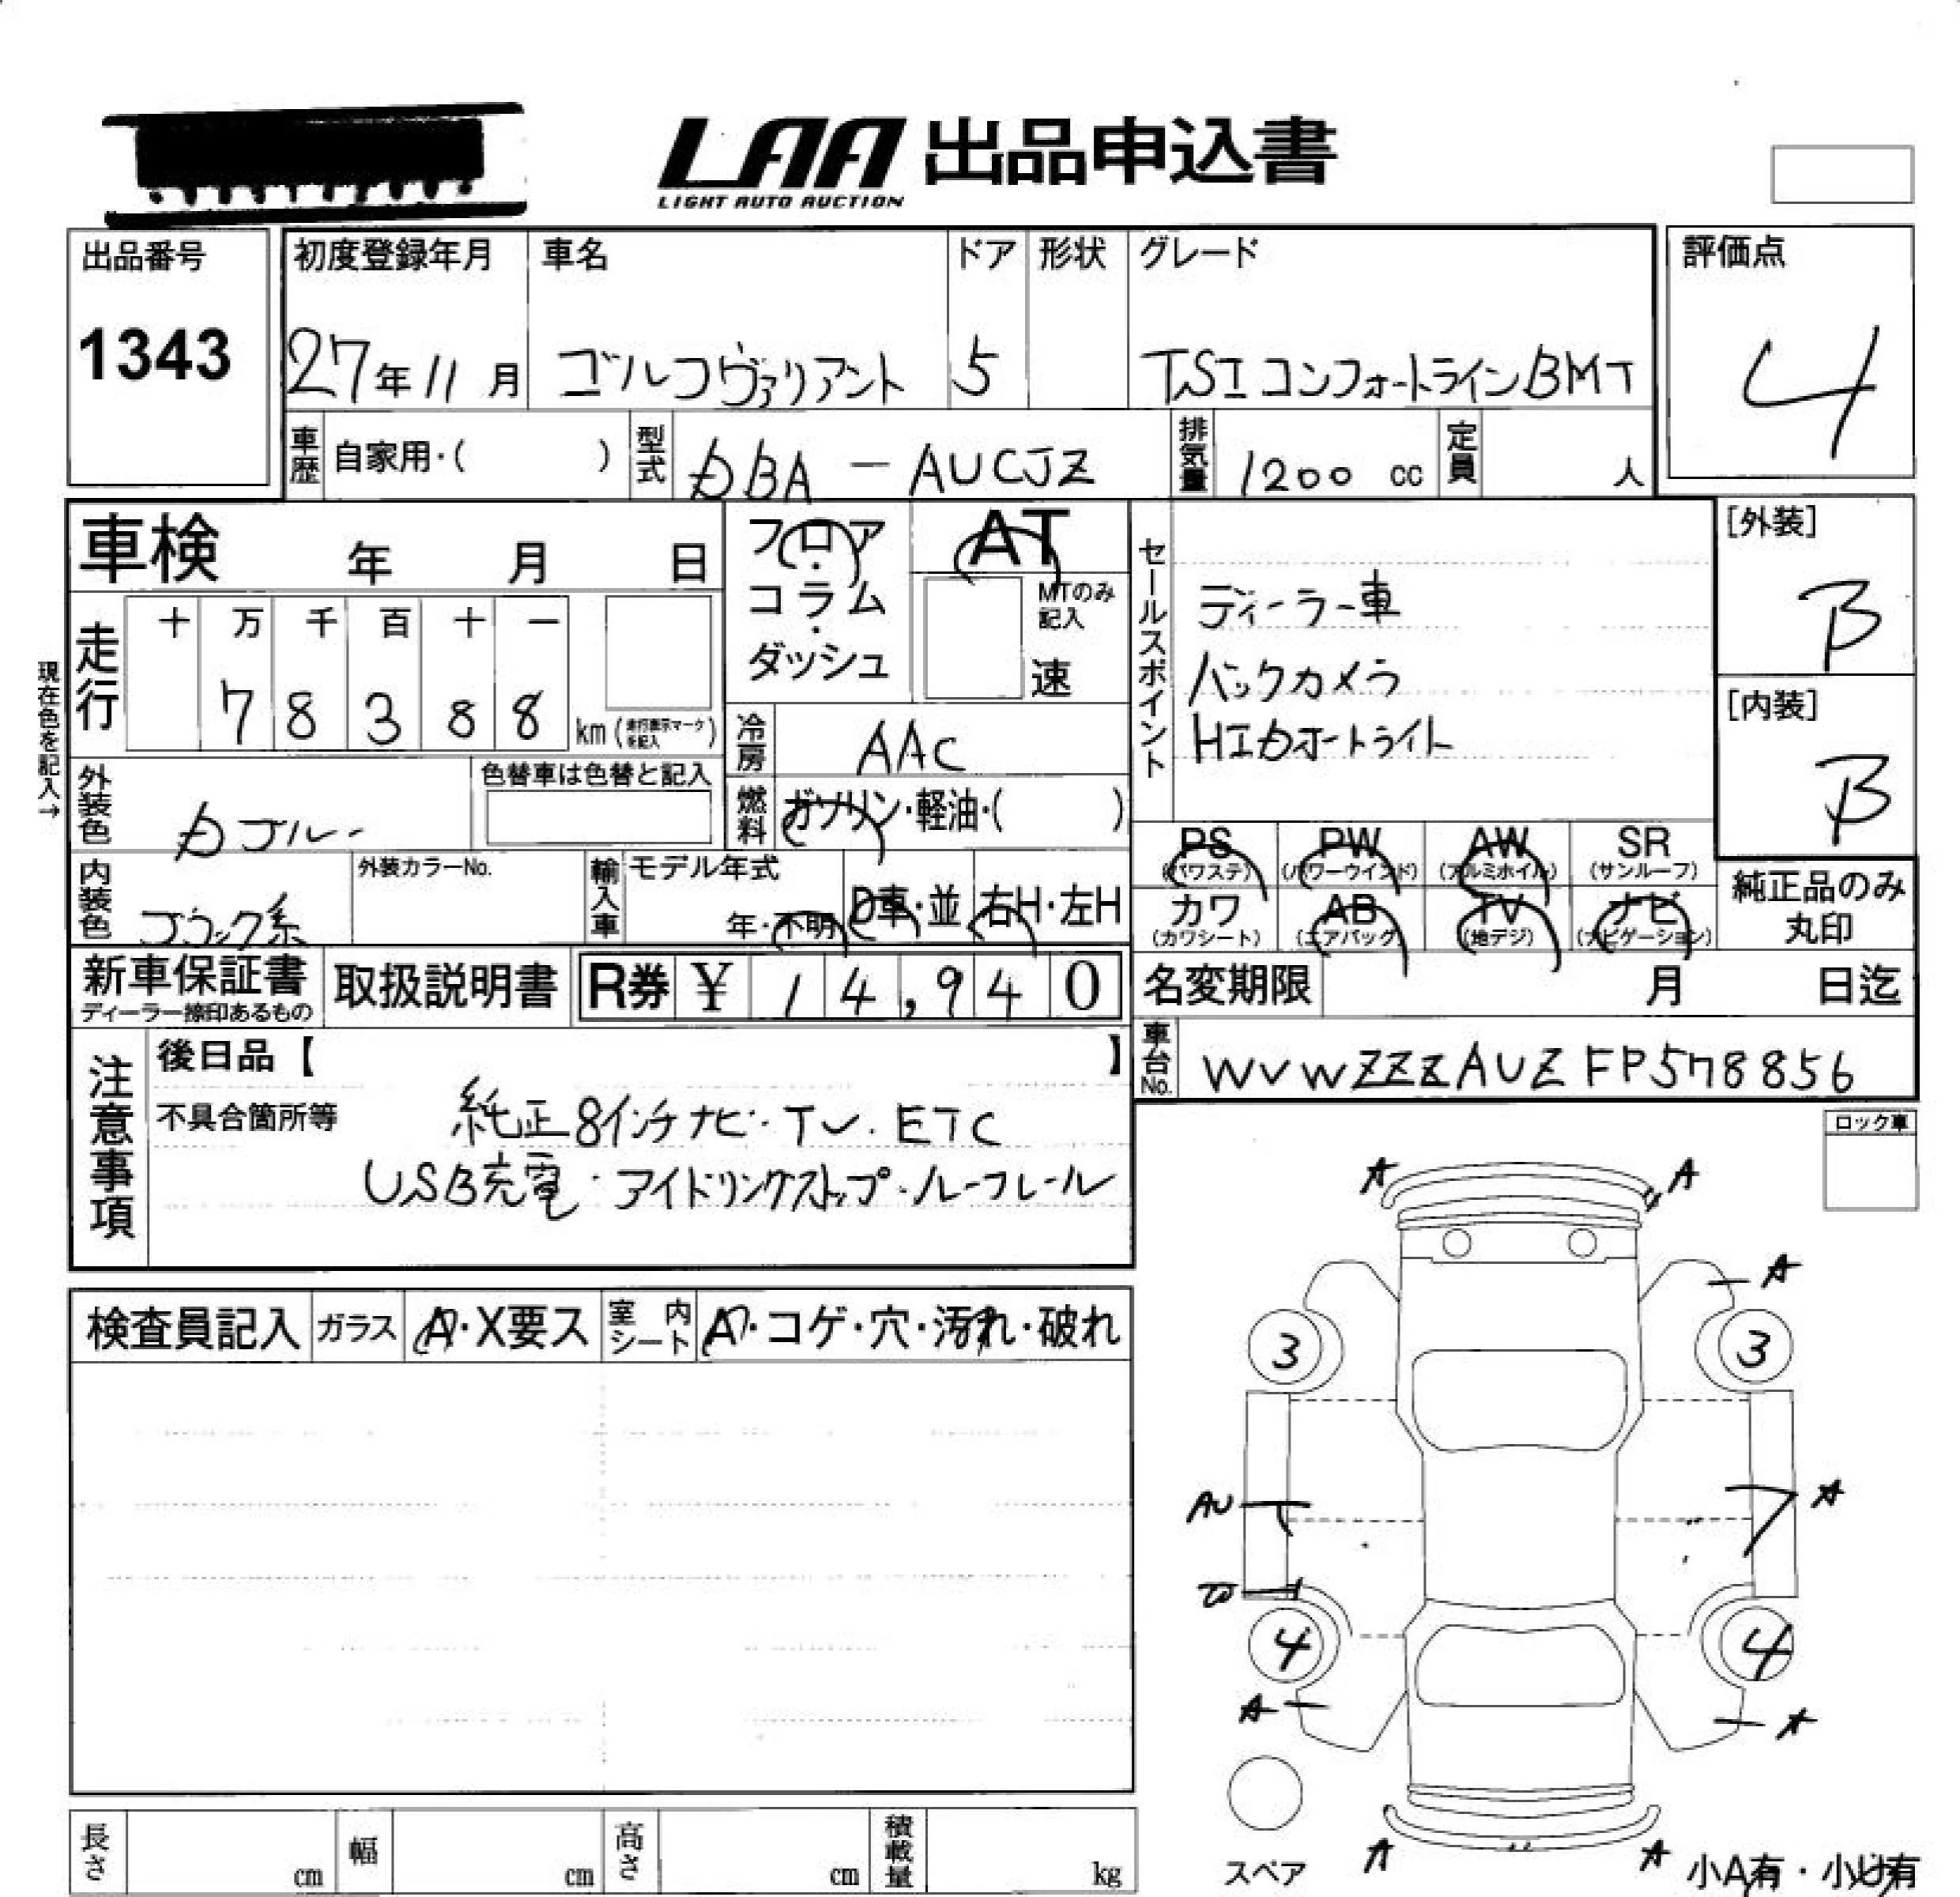 LAA 出品申込書
LIGHT AUTO AUCTION
出品番号
1343
初度登録年月
27年11月
車名
ゴルフヴァリアント
ドア
5
形状
グレード
TSIコンフォートラインBMT
評価点
4
車歴 自家用・( )
型式 DBA-AUCJZ
排気量 1200 cc
定員 人
車検 年 月 日
フロア・コラム・ダッシュ
AT
MTのみ記入
速
セールスポイント
ディーラー車
バックカメラ
HIDオートライト
[外装]
B
[内装]
B
現在色を記入→
走行
十 万 千 百 十 一
7 8 3 8 8 km (走行表示マークを記入)
冷房 AAC
外装色 Dブルー
色替車は色替と記入
燃料 ガソリン・軽油・( )
PS (パワステ) PW (パワーウインド) AW (アルミホイル) SR (サンルーフ)
カワ (カワシート) AB (エアバッグ) TV (地デジ) ナビ (ナビゲーション)
純正品のみ丸印
内装色 ブラック系
外装カラーNo.
輸入車 モデル年式
年・不明 D車・並 右H・左H
新車保証書
ディーラー捺印あるもの
取扱説明書
R券 ¥ 14,940
名変期限 月 日迄
車台No. WVWZZZAUZFP578856
注意事項
後日品【 】
不具合箇所等
純正8インチナビ・TV・ETC
USB充電・アイドリングストップ・ルーフレール
ロック車
検査員記入 ガラス A・X要ス 室内シート A・コゲ・穴・汚れ・破れ
A A
A
3 3
AU A
4 4
A A
スペア
A A
小A有・小U有
長さ cm 幅 cm 高さ cm 積載量 kg